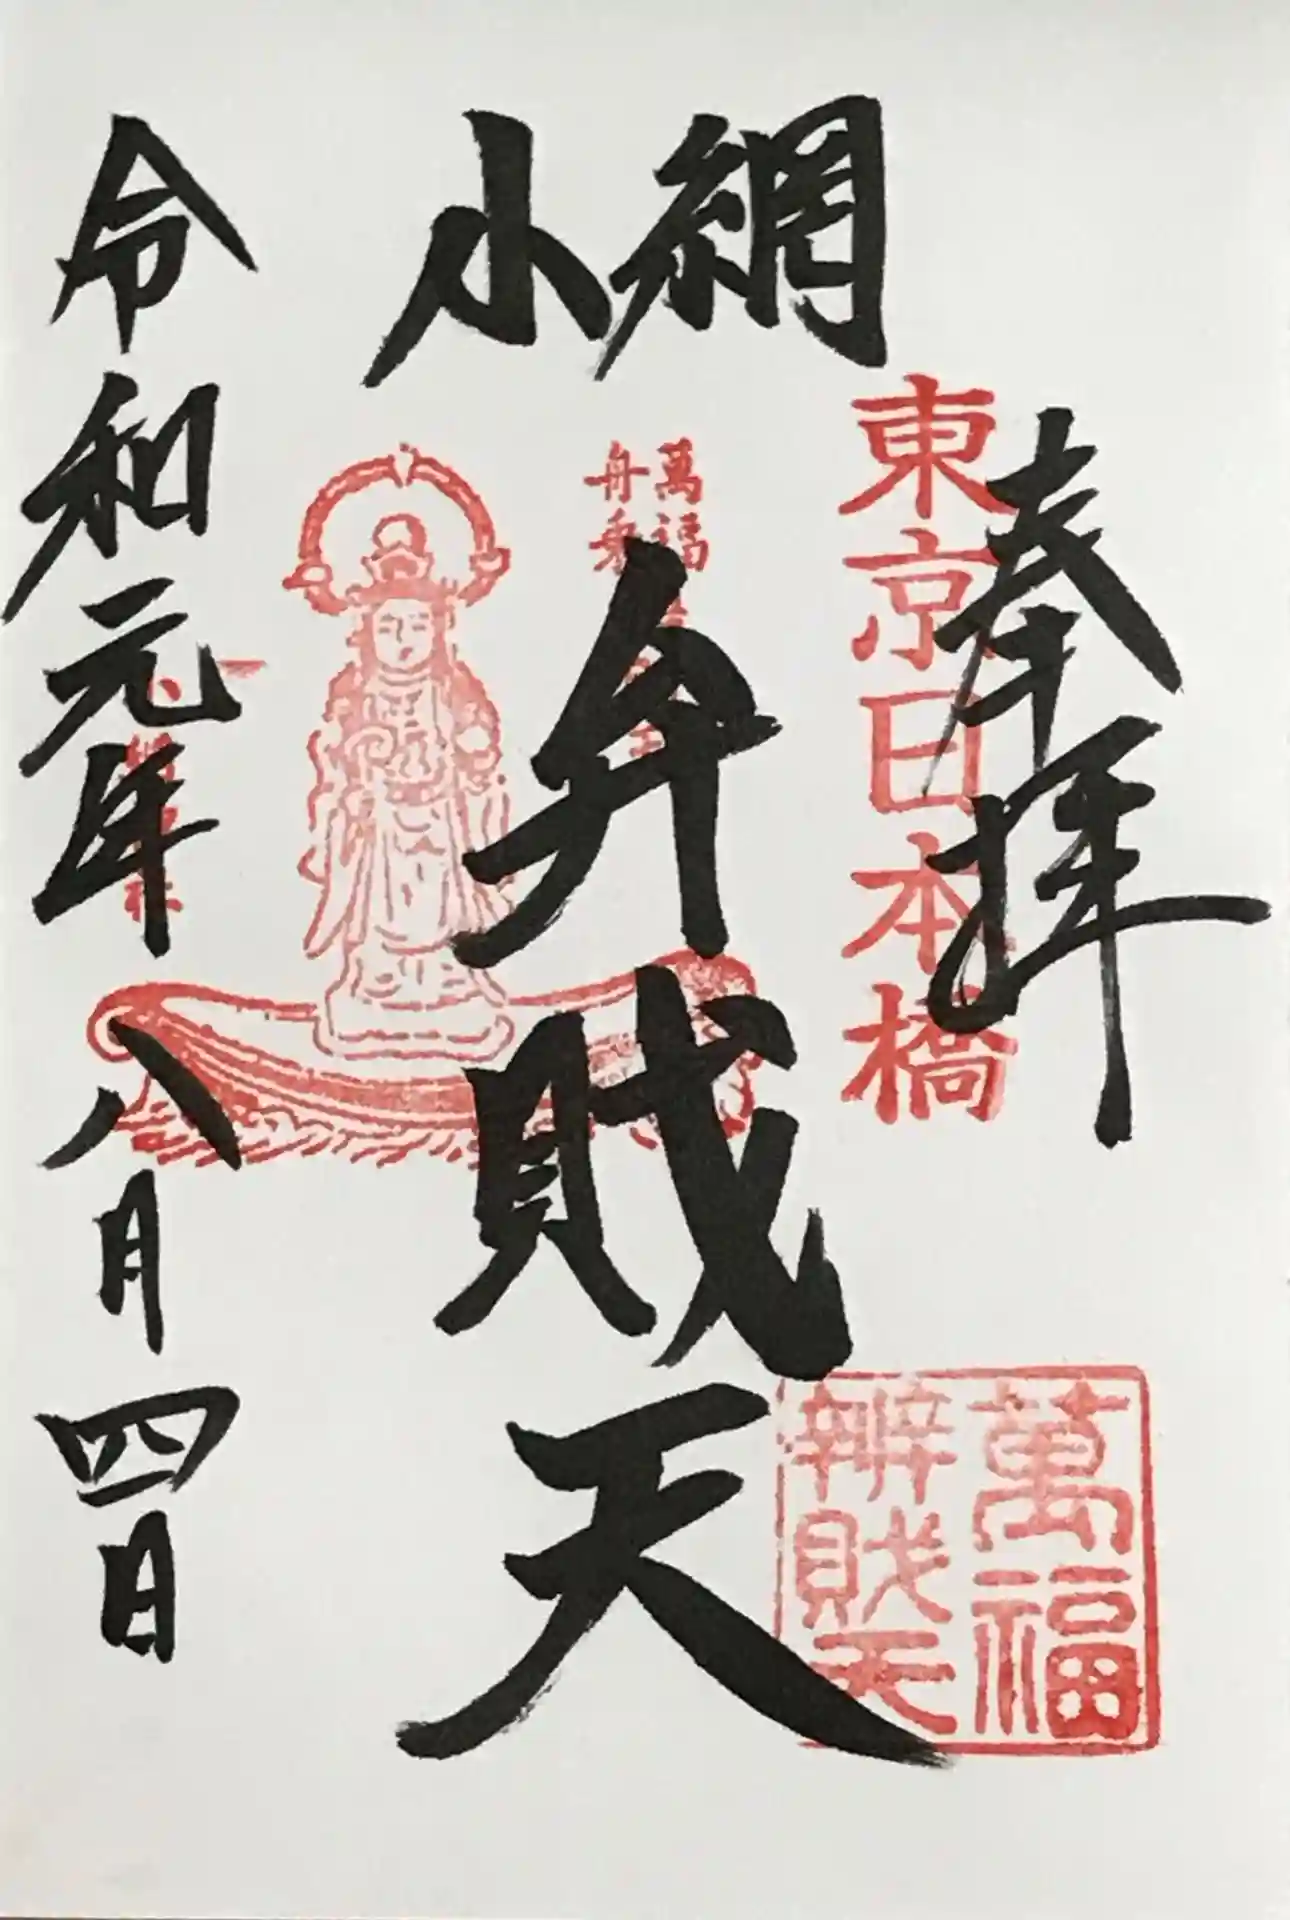 小網
奉拝
東京日本橋
萬福
舟乗
弁財天
令和元年八月四日
萬福
辨財天